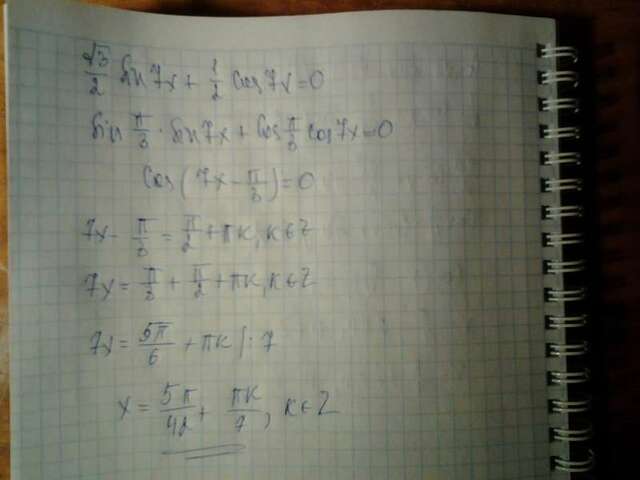 √3/2 sin 7x + 1/2 cos 7x = 0
sin π/3 · sin 7x + cos π/3 cos 7x = 0
cos(7x - π/3) = 0
7x - π/3 = π/2 + πk, k∈Z
7x = π/3 + π/2 + πk, k∈Z
7x = 5π/6 + πk | : 7
x = 5π/42 + πk/7, k∈Z